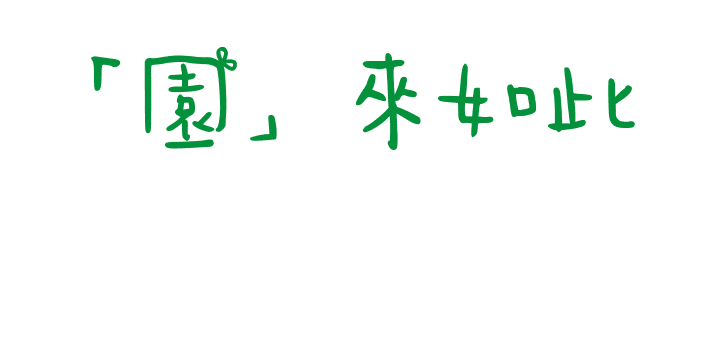 「園」來如此